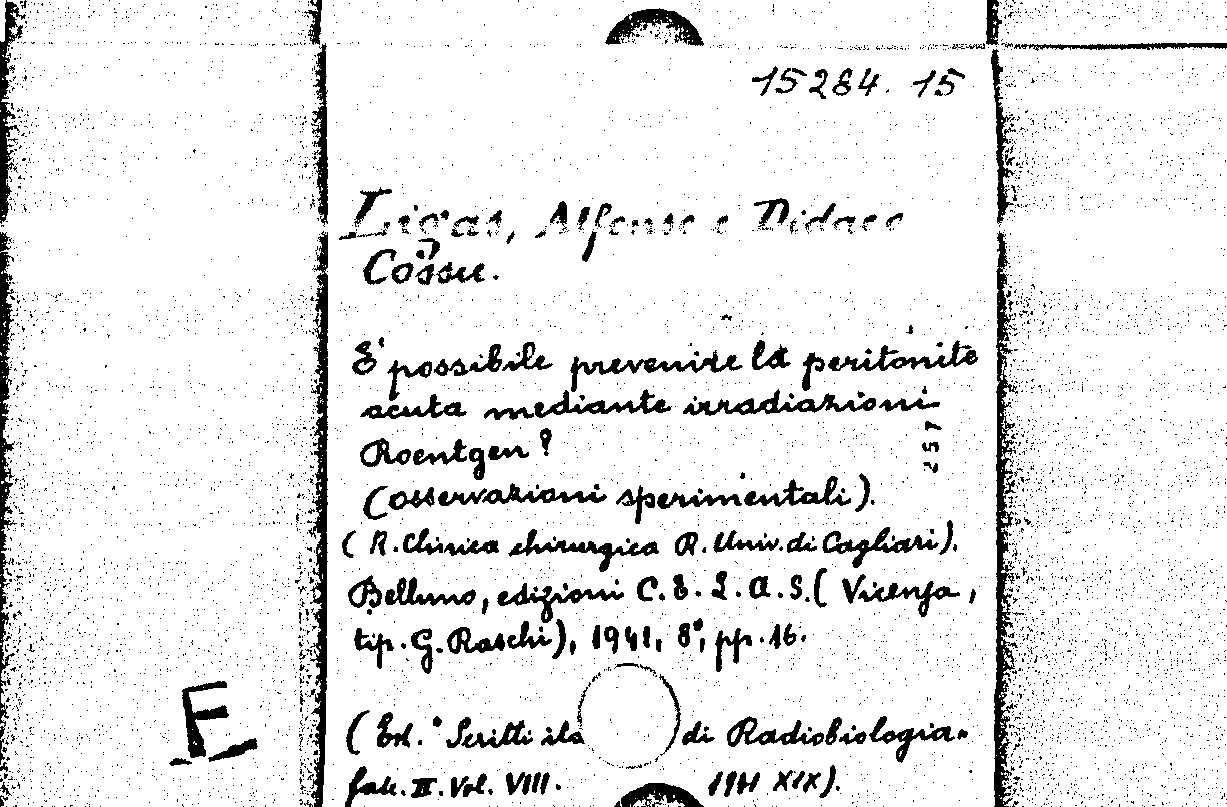 15284. 15
Ligas, Alfonso e Didaco
Cossu.
E' possibile prevenire la peritonite
acuta mediante irradiazioni
Roentgen?
257
(osservazioni sperimentali).
(R. Clinica chirurgica R. Univ. di Cagliari).
Belluno, edizioni C. E. L. A. S. (Vicenza,
tip. G. Raschi), 1941, 8°, pp. 16.
F
(Est. "Scritti di Radiobiologia"
fasc. II. Vol. VIII. 1941 XIX).